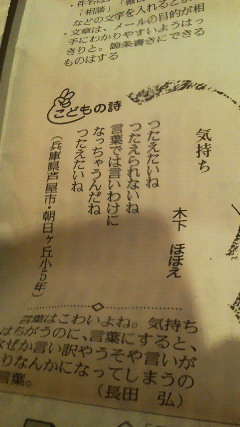 ・件名は、
「相談」
などの文字を入れると
・文章は、メールの目的が相
手にわかりやすいようはっ
きりと。箇条書きにできる
ものはする
こどもの詩
気持ち
木下 ほほえ
つたえたいね
つたえられないね
言葉では言いわけに
なっちゃうんだね
つたえたいね
(兵庫県芦屋市・朝日ヶ丘小5年)
言葉はこわいよね。気持ち
はちがうのに、言葉にすると、
なぜか言い訳やうそや言いが
りなんかになってしまうの
言葉。
(長田 弘)